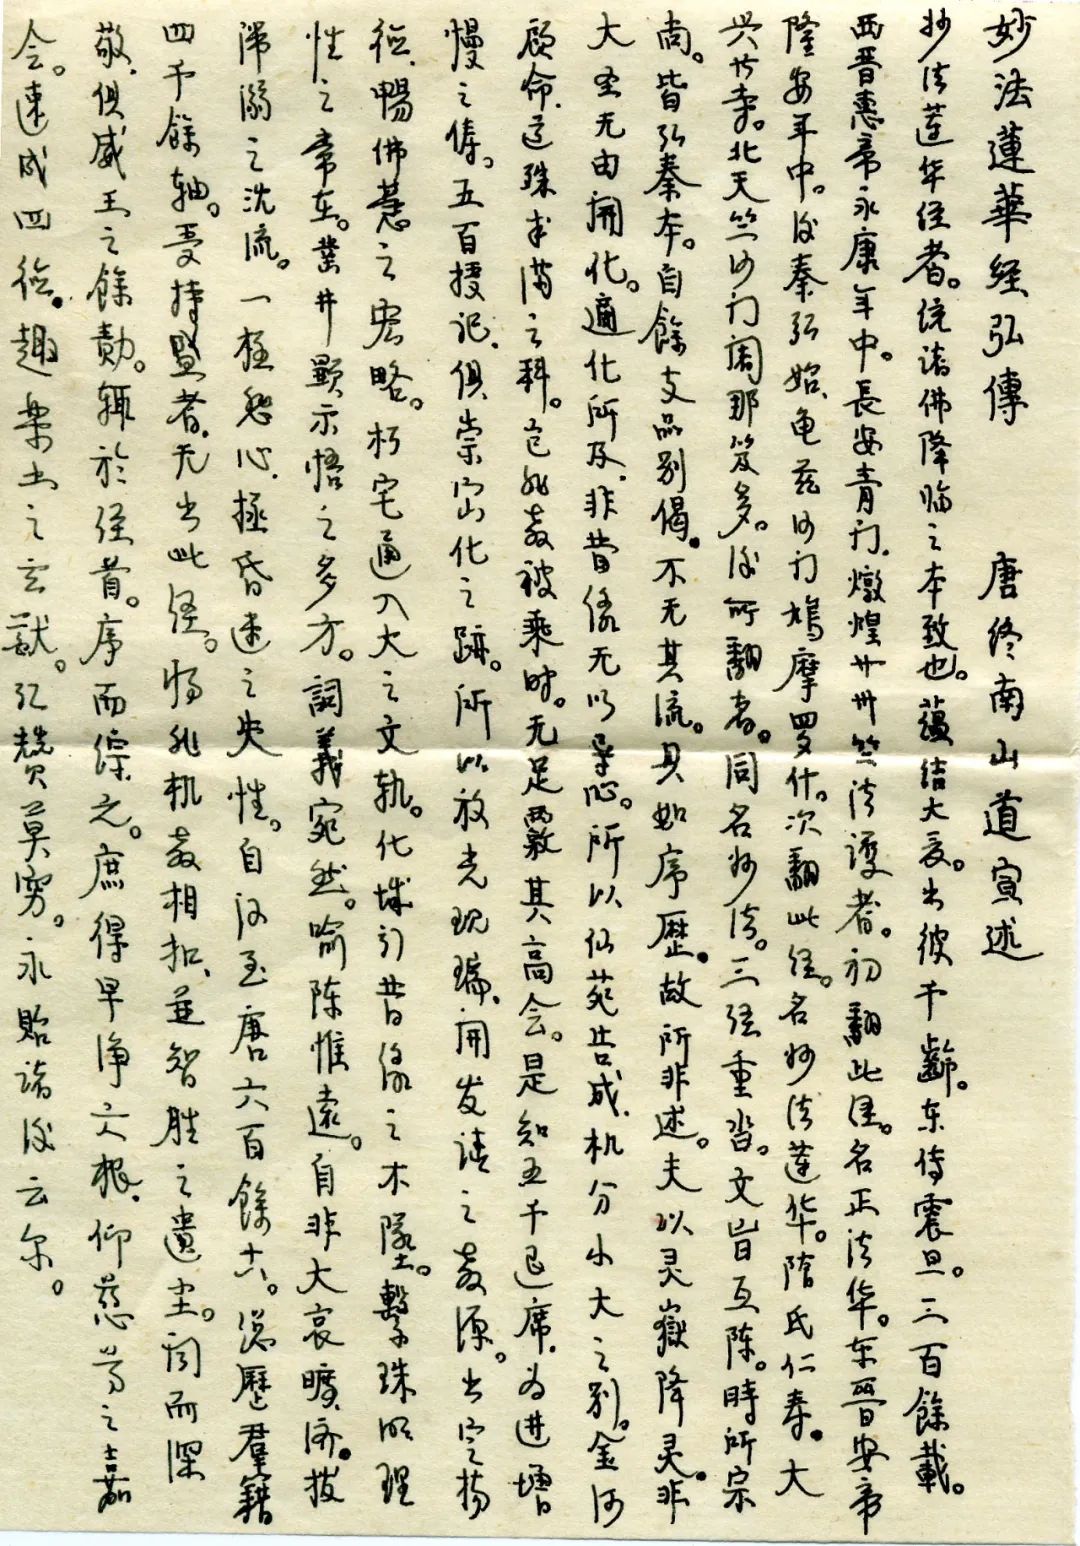 妙法蓮華经弘傳　唐终南山道宣述
妙法莲华经者。统诸佛降临之本致也。蕴结大夏。出彼千齡。东传震旦。三百餘載。
西晋惠帝永康年中。長安青门.燉煌卄卌竺法護者。初翻此经。名正法华。东晋安帝
隆安年中。后秦弘始.龟兹沙门鳩摩罗什。次翻此经。名妙法莲华。隋氏仁寿。大
兴善寺。北天竺沙门阇那笈多。後所翻者。同名妙法。三经重沓。文旨互陈。時所宗
尚。皆弘秦本。自餘支品别偈。不无其流。具如序歷。故所非述。夫以灵嶽降灵。非
大圣无由開化。適化所及.非昔缘无以导心。所以仙苑告成.机分小大之别。金河
顾命.道殊半满之科。岂非教被乘时。无足覈其高会。是知五千退席.为进增
慢之俦。五百授记.俱崇密化之跡。所以放光现瑞.開发请之教源。出定扬
德.暢佛慧之宏略。朽宅通入大之文轨。化城引昔缘之不墜。繫珠明理
性之常在。凿井顯示悟之多方。詞義宛然。喻陈惟遠。自非大哀曠济。拔
滞溺之沈流。一极悲心.拯昏迷之失性。自汉至唐六百餘六。总歷羣籍
四千餘轴。受持盛者.无出此经。将非机教相扣.並智胜之遺尘。闻而深
敬.俱威王之餘勣。輒於经首。序而综之。庶得早净六根.仰慈尊之嘉
会。速成四德。趣乐土之玄猷。弘赞莫穷。永貽诸後云尔。